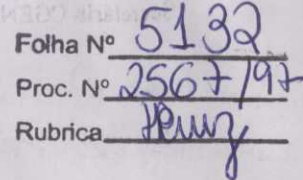 Folha Nº 5132
Proc. Nº 2567/97
Rubrica